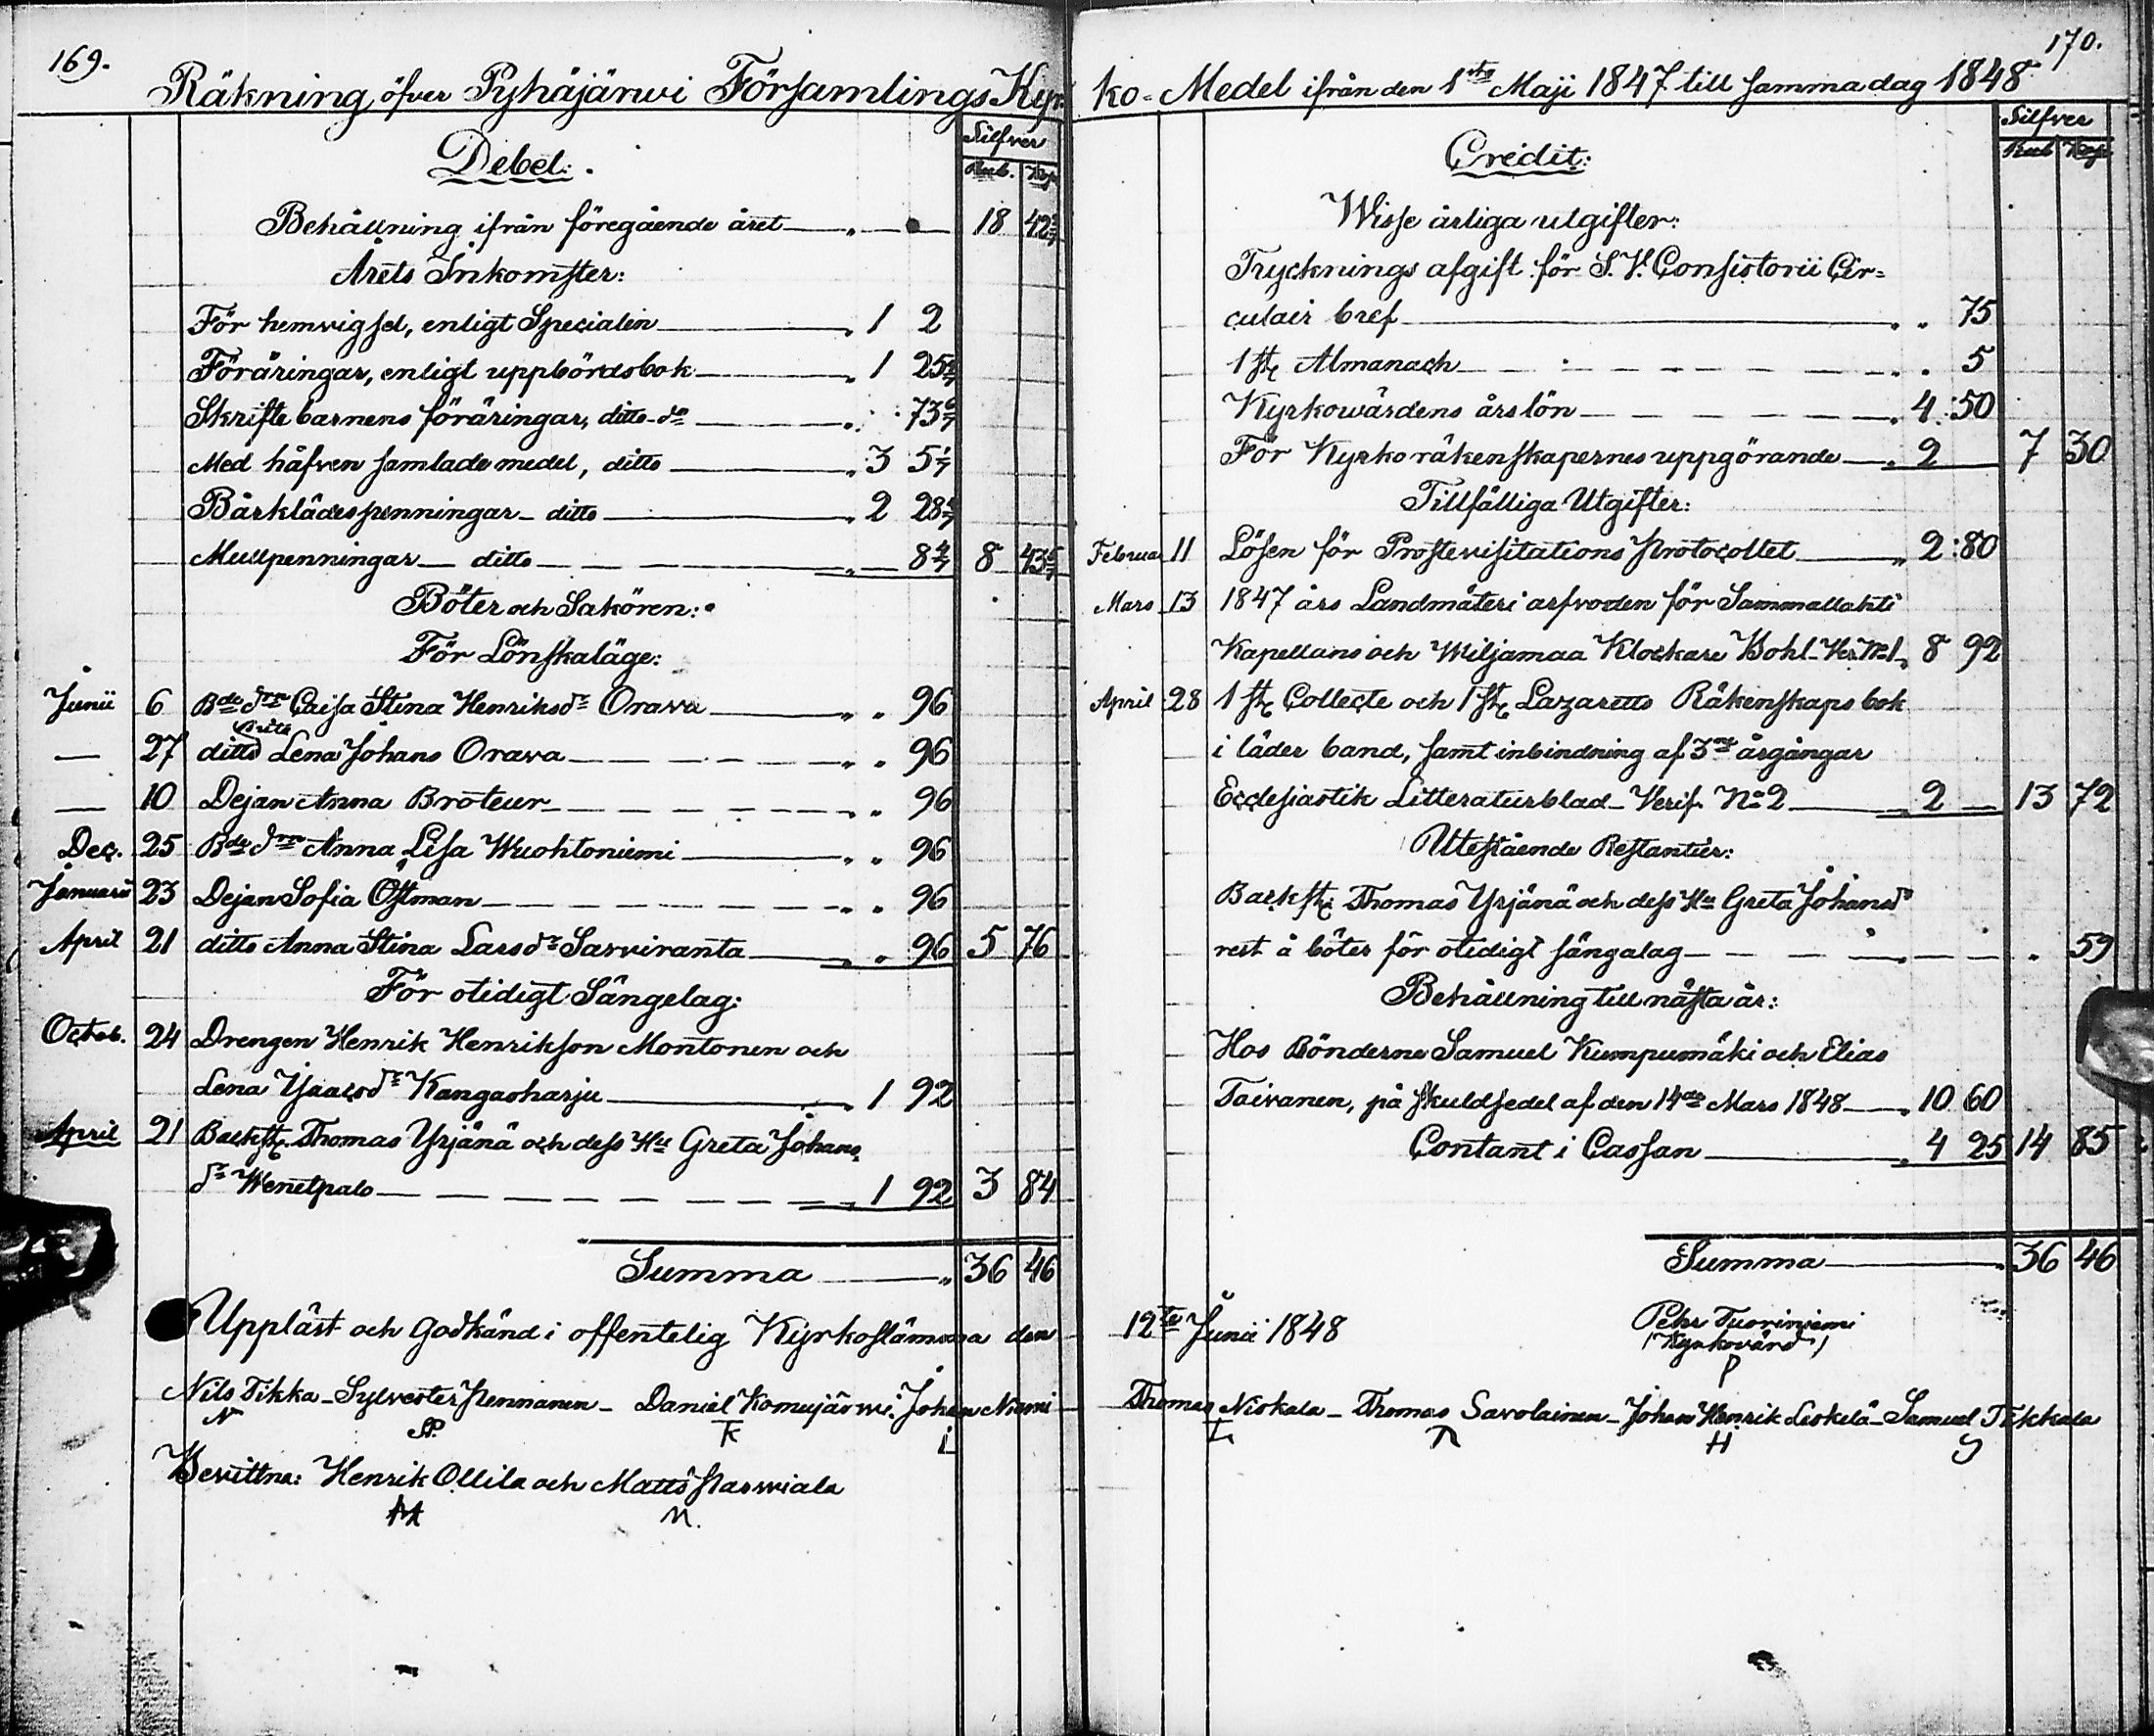 169.
Räkning öfver Pyhäjärwi Församlings Kyr-
Silfver
Debet:
Rub. Kop
Behållning ifrån föregående året 18 42 2/7
Årets Inkomster:
För hemvigsel, enligt Specialen 1 2
Föräringar, enligt uppbördsbok 1 25
Skriftebarnens föräringar, ditto do 73 6/7
Med håfven samlade medel, ditto 3 5 1/7
Bårklädespenningar ditto 2 28 4/7
Mullpenningar ditto 8 4/7 8 43 5/7
Böter och Saköron:
För Lönskaläge:
Junii 6 Bde dtr Caisa Stina Henriksdr Orava " " 96
— 27 ditto Lena Johans Orava " " 96
— 10 Dejan Anna Broteur " " 96
Dec. 25 Bde dtr Anna Lisa Wuohtoniemi " " 96
Januarii 23 Dejan Sofia Östman " " 96
April 21 ditto Anna Stina Larsdr Sarviranta " " 96 5 76
För otidigt Sängelag:
Octob. 24 Drengen Henrik Henrikson Montonen och
Lena Isaacsdr Kangasharju 1 92
April 21 Backst. Thomas Yrjänä och dess Hu Greta Johans
dr Wenetpalo 1 92 3 84
Summa 36 46
Uppläst och Godkänd i offentelig Kyrkostämma den
Nils Tikka - Sylvester Pennanen - Daniel Komujärwi. Johan Niemi
N SP. K L
Bevittna: Henrik Ollila och Matts Parwiala
M
170.
ko-Medel ifrån den 1sta Maji 1847 till samma dag 1848
Silfver
Credit:
Rub Kop
Wisse årliga utgifter:
Trycknings afgift för S. V. Consistorii Cir-
culair bref " " 75
1 st. Almanach " " 5
Kyrkowärdens årslön 4 : 50
För Kyrkoräkenskapernes uppgörande 2 7 30
Tillfälliga Utgifter:
Februar 11 Lösen för Prostevisitations Protocollet 2 : 80
Mars 13 1847 års Landmäteri arfvoden för Sammallahti
Kapellans och Wiljamaa Klockare Bohl. Ver. No 1 8 92
April 28 1 st. Collecte och 1 st. Lazaretts Räkenskaps bok
i läder band, samt inbindning af 3ne årgångar
Ecclesiastik Litteraturblad Verif. No 2 2 — 13 72
Utestående Restantier:
Backst. Thomas Yrjänä och dess Hu Greta Johansdr
rest å böter för otidigt sängalag " 59
Behållning till nästa år:
Hos Bönderne Samuel Kumpumäki och Elias
Taivanen, på skuldsedel af den 14de Mars 1848 10 60
Contant i Cassan 4 25 14 85
Summa 36 46
12te Junii 1848
Pehr Tuoriniemi
(Kyrkovärd)
P
Thomas Niskala - Thomas Savolainen - Johan Henrik Leskelä - Samuel Tikkala
H